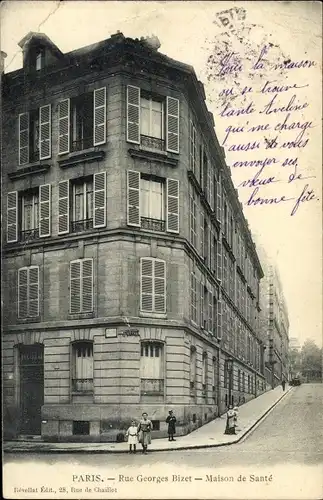 PARIS. – Rue Georges Bizet – Maison de Santé
Dévéllet Édit, 28, Rue de Chaillot
Voici la maison
où se trouve
tante Aveline
qui me charge
de vous
envoyer ses
vœux de
bonne fête.